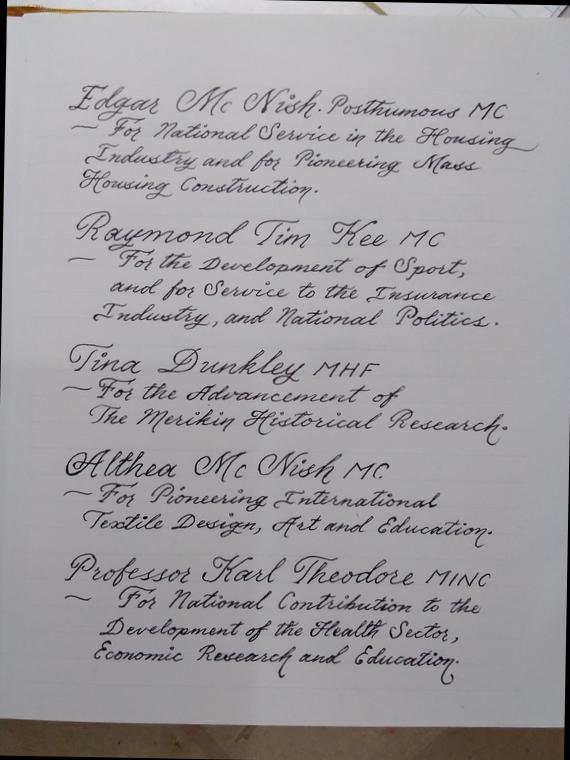 Edgar Mc Nish. Posthumous MC
— For National Service in the Housing
Industry and for Pioneering Mass
Housing Construction.
Raymond Tim Kee MC
— For the Development of Sport,
and for Service to the Insurance
Industry, and National Politics.
Tina Dunkley MHF
— For the Advancement of
The Merikin Historical Research.
Althea Mc Nish MC
— For Pioneering International
Textile Design, Art and Education.
Professor Karl Theodore MINC
— For National Contribution to the
Development of the Health Sector,
Economic Research and Education.